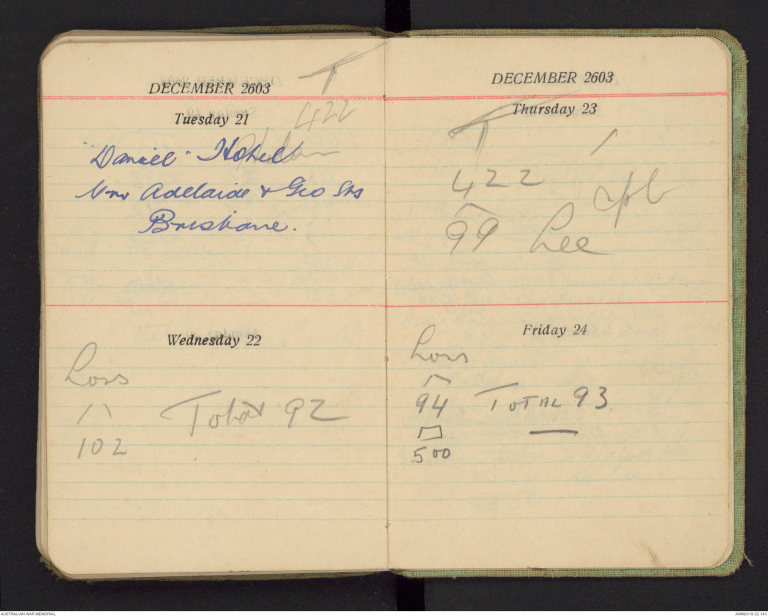 DECEMBER 2603
T
422
Tuesday 21
"Daniell" Hotel
Cnr Adelaide & Geo Sts
Brisbane.
Wednesday 22
Loss
102
Total 92
DECEMBER 2603
Thursday 23
T
422
99 Lee
Friday 24
Loss
94 TOTAL 93
500
AUSTRALIAN WAR MEMORIAL